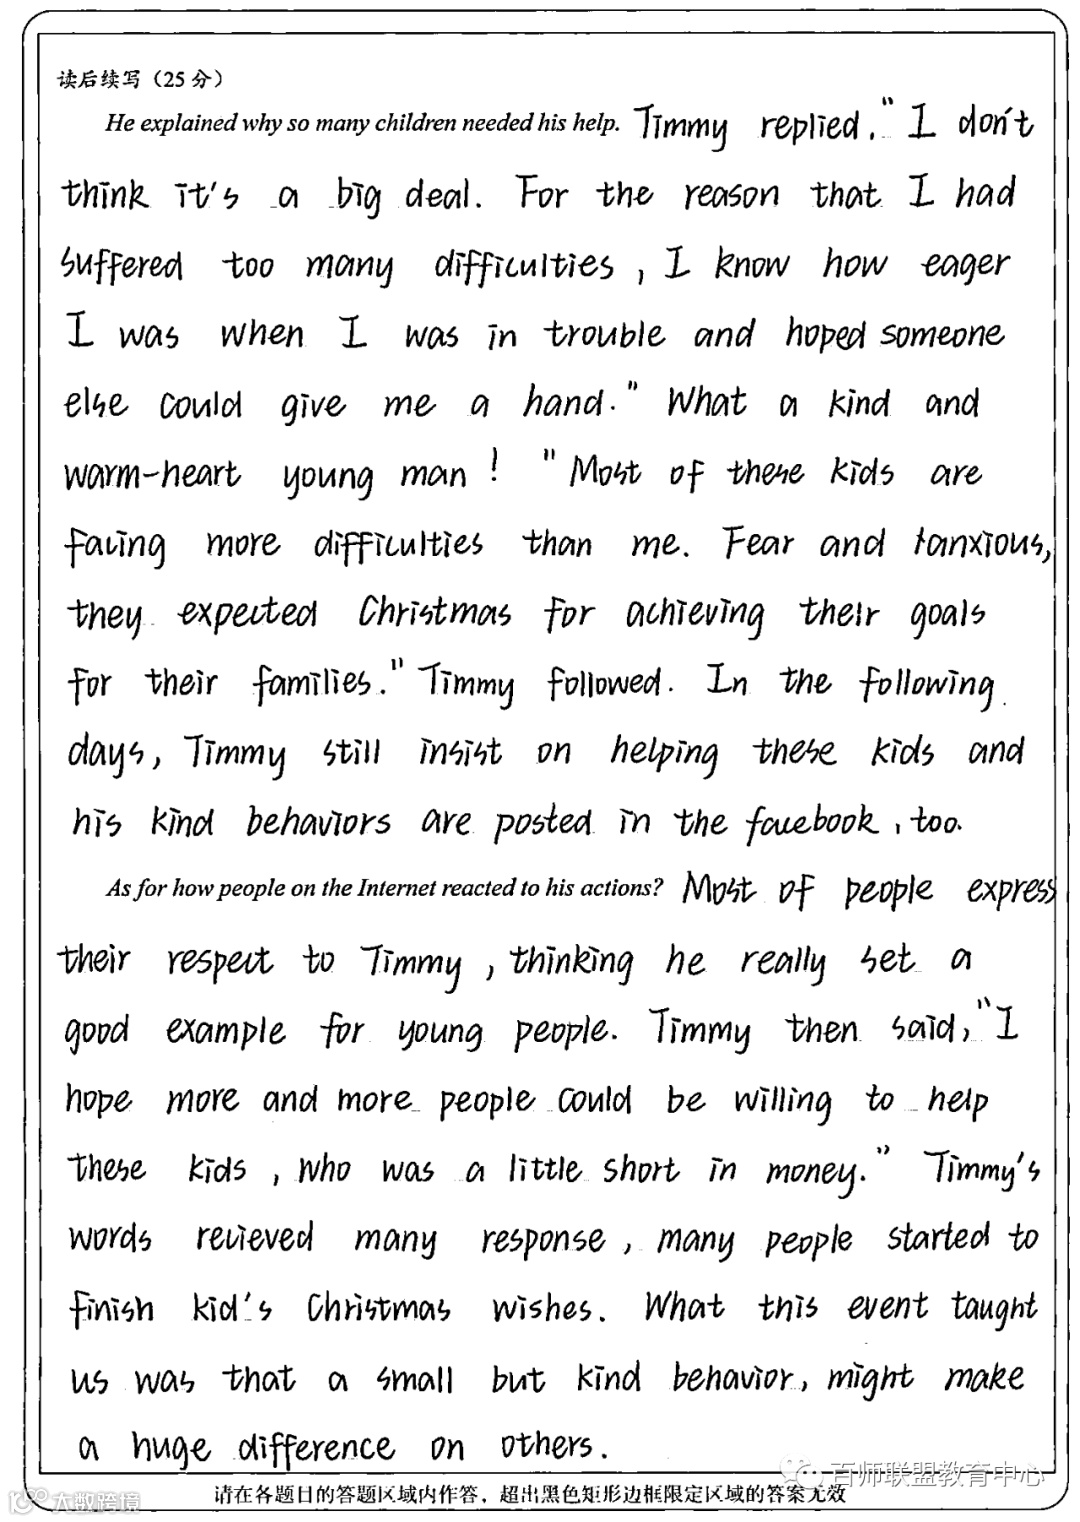 读后续写（25 分）
He explained why so many children needed his help. Timmy replied. " I don't
think it's a big deal. For the reason that I had
suffered too many difficulties , I know how eager
I was when I was in trouble and hoped someone
else could give me a hand. " What a kind and
warm-heart young man ! " Most of these kids are
facing more difficulties than me. Fear and anxious,
they expected Christmas for achieving their goals
for their families. " Timmy followed. In the following
days, Timmy still insist on helping these kids and
his kind behaviors are posted in the facebook , too.
As for how people on the Internet reacted to his actions? Most of people express
their respect to Timmy , thinking he really set a
good example for young people. Timmy then said, " I
hope more and more people could be willing to help
these kids , who was a little short in money. " Timmy's
words recieved many response , many people started to
finish kid's Christmas wishes. What this event taught
us was that a small but kind behavior, might make
a huge difference on others.
百师联盟教育中心
大数跨境
请在各题目的答题区域内作答，超出黑色矩形边框限定区域的答案无效